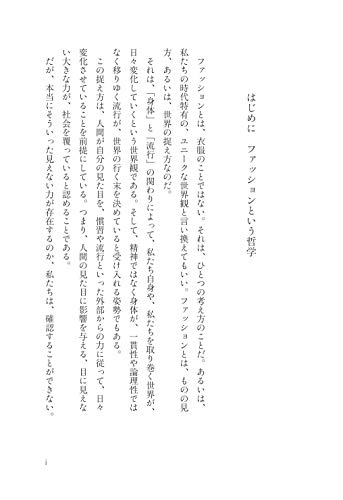 はじめに　ファッションという哲学
ファッションとは、衣服のことではない。それは、ひとつの考え方のことだ。あるいは、
私たちの時代特有の、ユニークな世界観と言い換えてもいい。ファッションとは、ものの見
方、あるいは、世界の捉え方なのだ。
それは、「身体」と「流行」の関わりによって、私たち自身や、私たちを取り巻く世界が、
日々変化していくという世界観である。そして、精神ではなく身体が、一貫性や論理性では
なく移りゆく流行が、世界の行く末を決めていると受け入れる姿勢でもある。
この捉え方は、人間が自分の見た目を、慣習や流行といった外部からの力に従って、日々
変化させていることを前提にしている。つまり、人間の見た目に影響を与える、目に見えな
い大きな力が、社会を覆っていると認めることである。
だが、本当にそういった見えない力が存在するのか、私たちは、確認することができない。
i